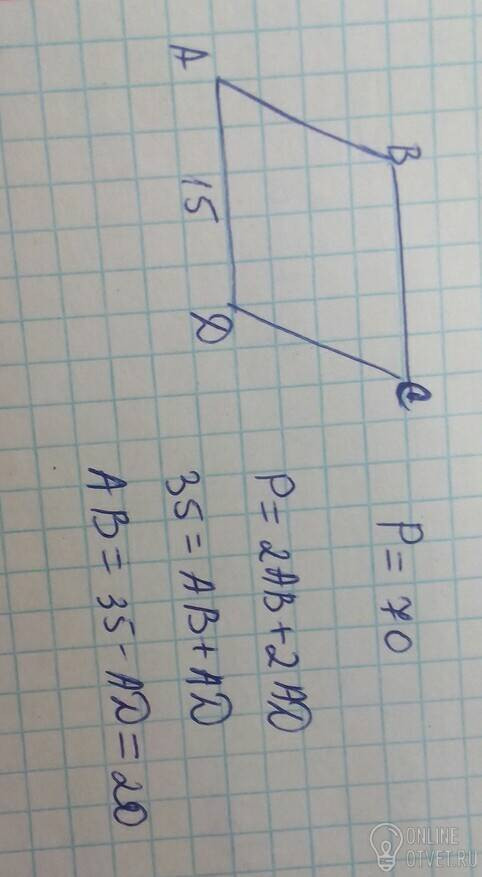 A
B
C
D
15
P = 70
P = 2AB + 2AD
35 = AB + AD
AB = 35 - AD = 20
ONLINE
OTVET.RU